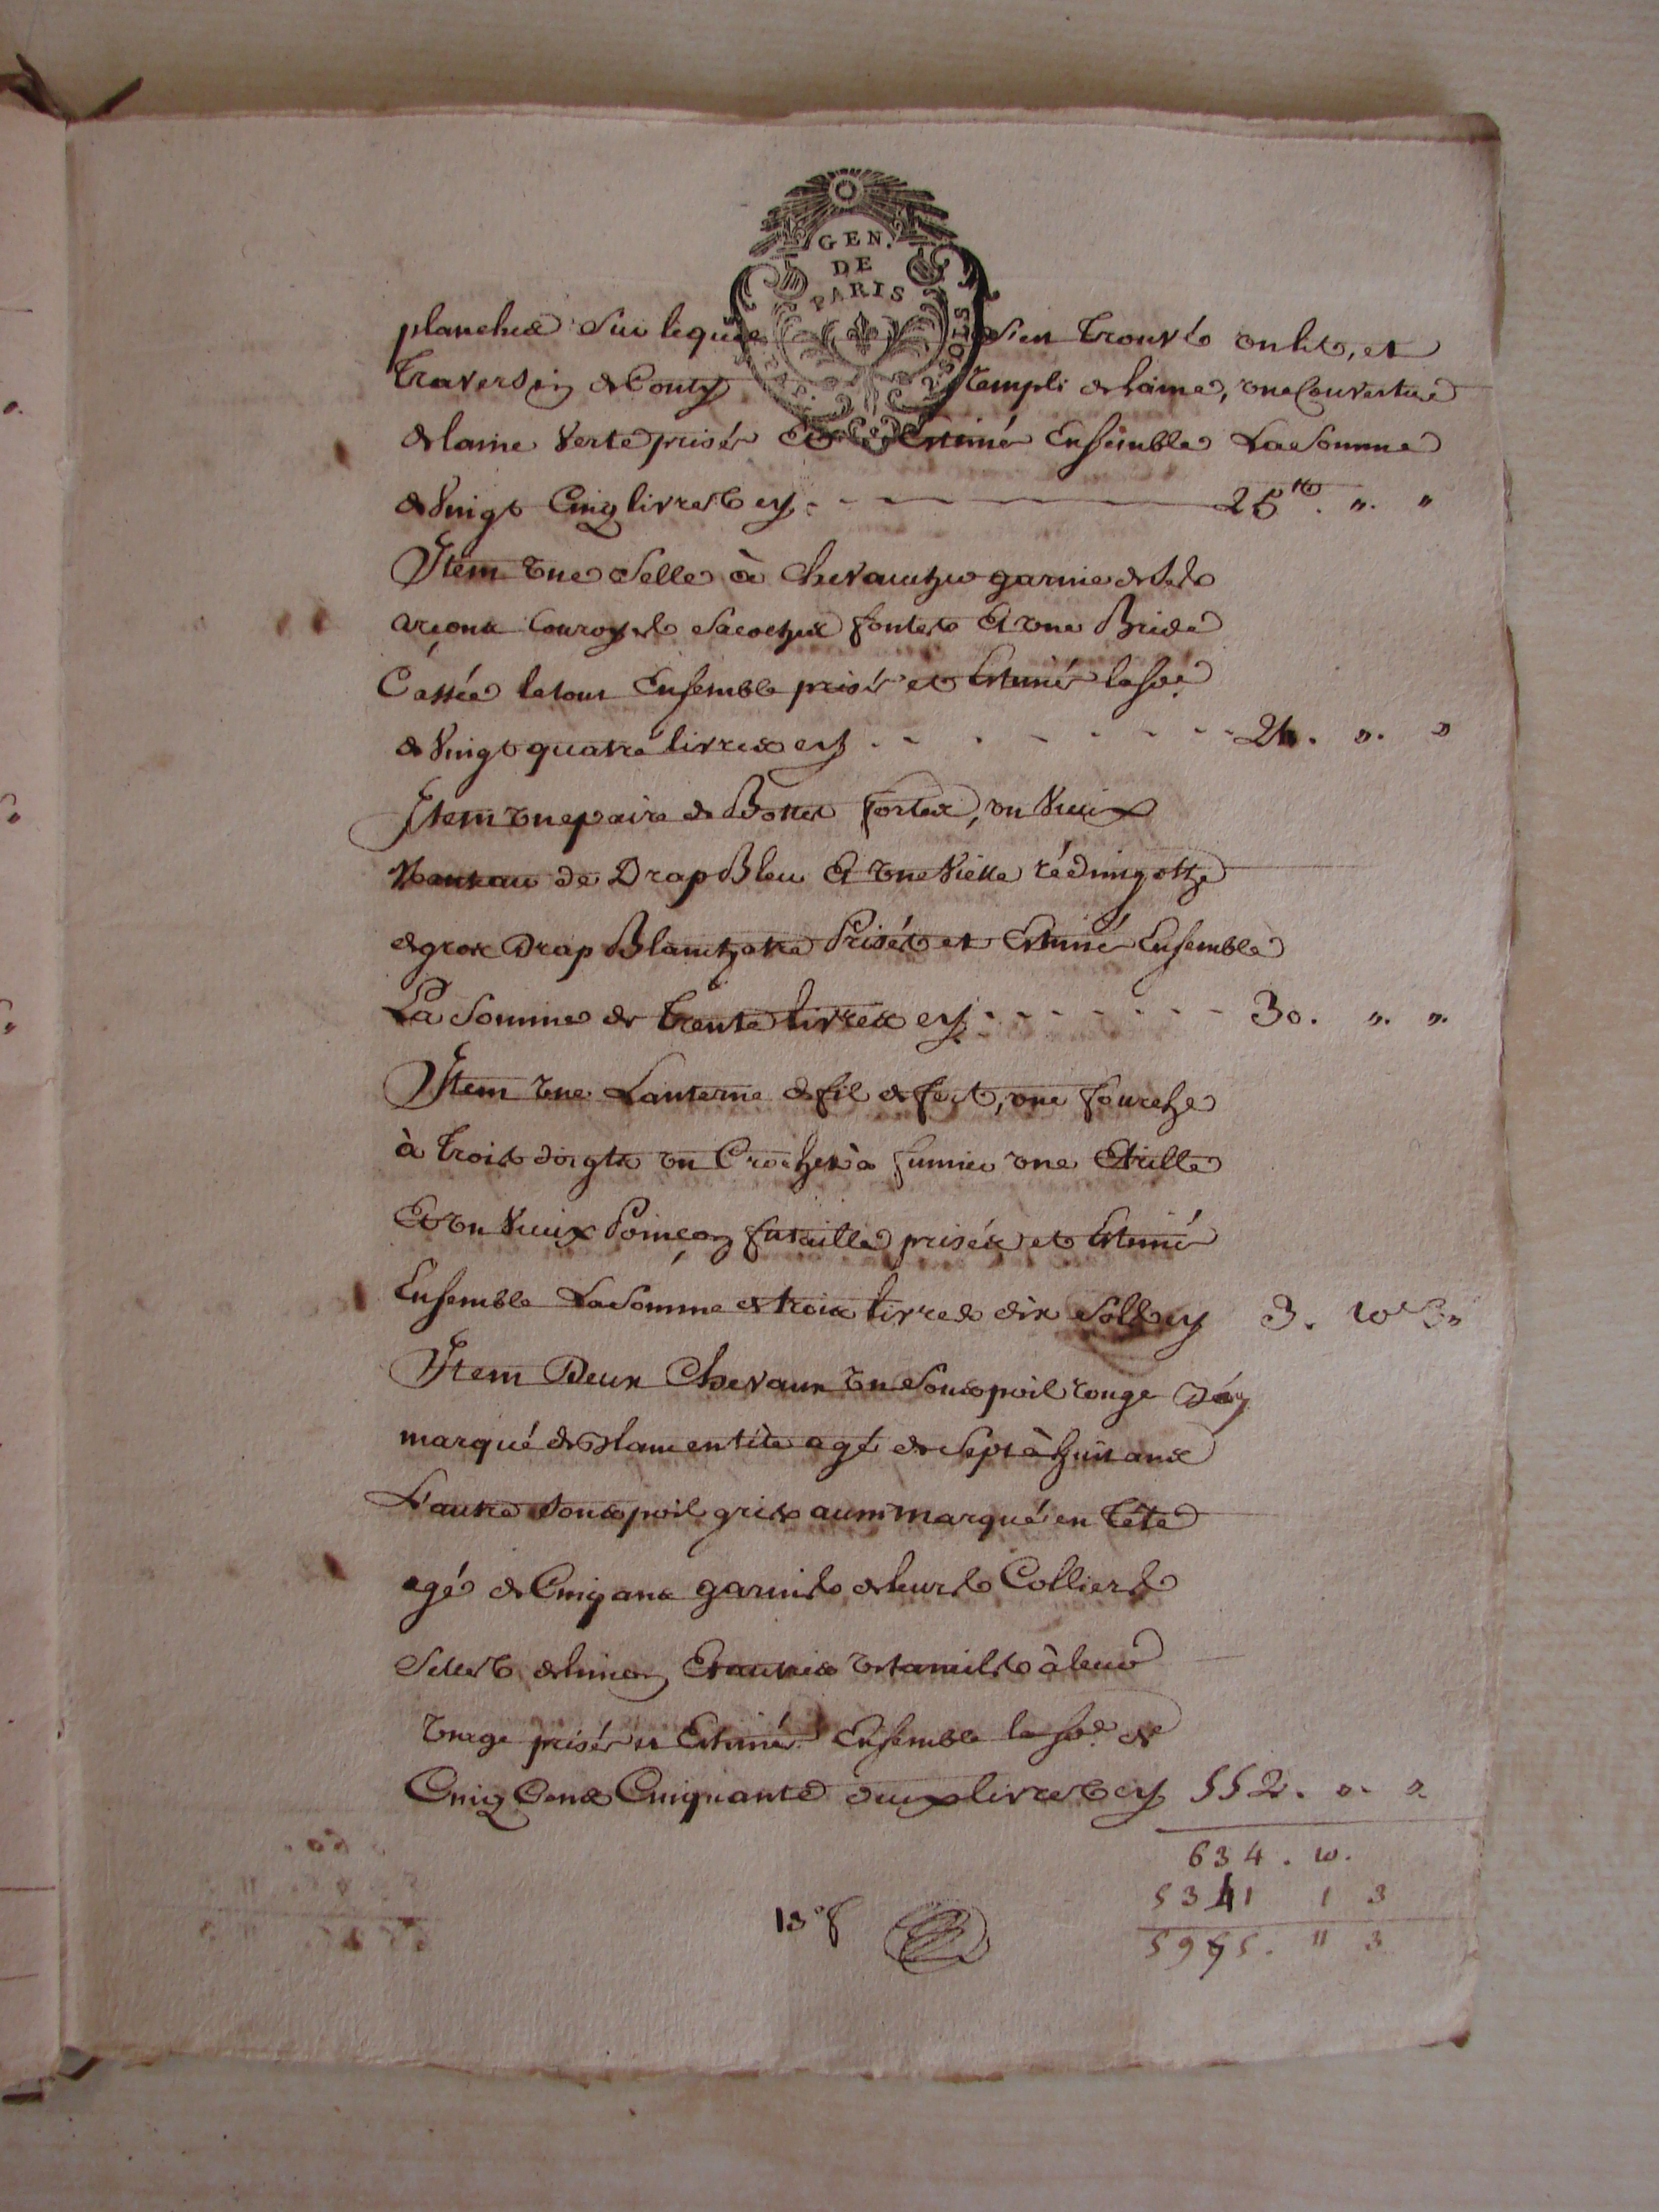 GEN.
DE
PARIS
planches sur lequel s'en trouvés un lit, et
traversin de Couty rempli de laine, une Couverture
de laine Verte prisés Et Estimés Ensemble La Somme
de Vingt Cinq livres cy 25tt. ". "
Item une Selle à Chevaucher garnie de Ses
arçons Couroyes Sacoches fontes Et une Bride
Cassée le tout Ensemble prisés et Estimés la Soe.
de Vingt quatre livres cy 24. ". "
Item une paire de Bottes fortes, un Vieux
Manteau de Drap Bleu Et une Vielle rédingotte
de gros Drap Blanchatre Prisés et Estimés Ensemble
La Somme de trente livres cy 30. ". ".
Item une Lanterne de fil de fer, une fourche
à trois doigts un Crochet à fumier une Etrille
Et un Vieux Poinçon futaille prisés et Estimés
Ensemble La Somme de trois livres dix Sols cy 3. 10 S "
Item Deux Chevaux un Sous poil rouge
marqué en tête agé de Sept à huit ans
L'autre Sous poil gris aussi marqué en tête
agé de Cinq ans garnis de leurs Colliers
Selles de limon Et autres Ustancils à leur
Usage prisés et Estimés Ensemble la Soe. de
Cinq Cens Cinquante deux livres cy 552. ". ".
634. 10.
5341 1 3
5975. 11 3
13e f